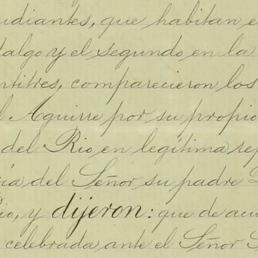 udiantes, que habitan e
dalgo y el segundo en la
ntitres, comparecieron los
l Aguirre por su propio
del Rio en legítima rep
cia del Señor su padre D
io, y dijeron: que de acu
celebrada ante el Señor